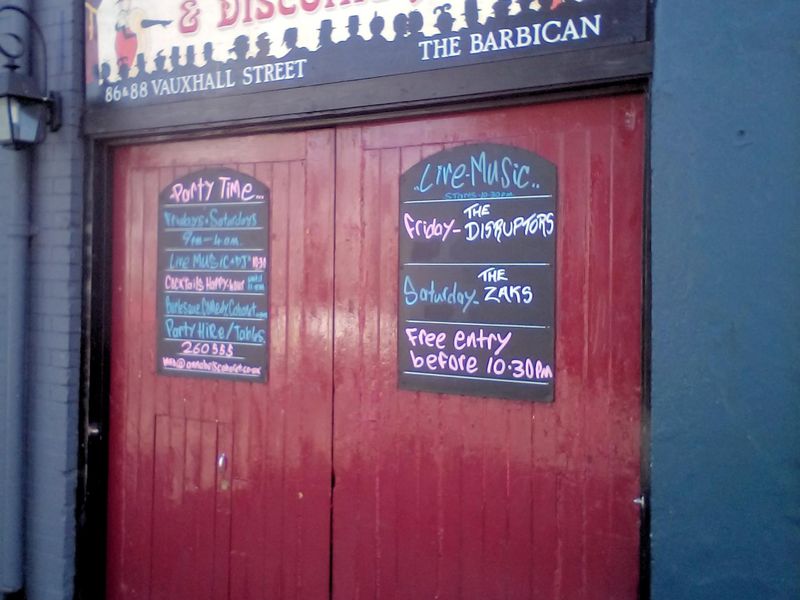 & DISCO
86&88 VAUXHALL STREET
THE BARBICAN
Party Time...
Fridays & Saturdays
9pm - 4am.
Live Music & DJ's 10:30
Cocktails Happy-hour until 11pm
Burlesque Comedy Cabaret
Party Hire/Tables
260555
info@annabelscabaret.co.uk
..Live-Music..
STARTS-10.30pm
Friday - THE DISRUPTORS
Saturday - THE ZAKS
Free entry
before 10.30pm